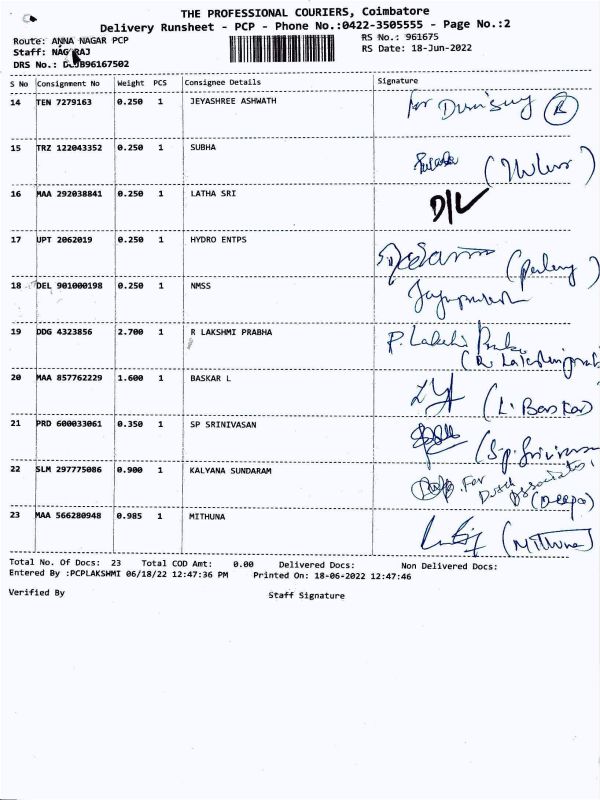 THE PROFESSIONAL COURIERS, Coimbatore
Delivery Runsheet - PCP - Phone No.:0422-3505555 - Page No.:2
Route: ANNA NAGAR PCP RS No.: 961675
Staff: NAGARAJ RS Date: 18-Jun-2022
DRS No.: B96167502
S No Consignment No Weight PCS Consignee Details Signature
14 TEN 7279163 0.250 1 JEYASHREE ASHWATH For
15 TRZ 122043352 0.250 1 SUBHA
16 MAA 292038841 0.250 1 LATHA SRI D/L
17 UPT 2062019 0.250 1 HYDRO ENTPS
18 DEL 901000198 0.250 1 NMSS
19 DDG 4323856 2.700 1 R LAKSHMI PRABHA
20 MAA 857762229 1.600 1 BASKAR L (L. Baskar)
21 PRD 600033061 0.350 1 SP SRINIVASAN
22 SLM 297775086 0.900 1 KALYANA SUNDARAM For
Associates,
(Deepa)
23 MAA 566280948 0.985 1 MITHUNA (Mithuna)
Total No. Of Docs: 23 Total COD Amt: 0.00 Delivered Docs: Non Delivered Docs:
Entered By :PCPLAKSHMI 06/18/22 12:47:36 PM Printed On: 18-06-2022 12:47:46
Verified By Staff Signature